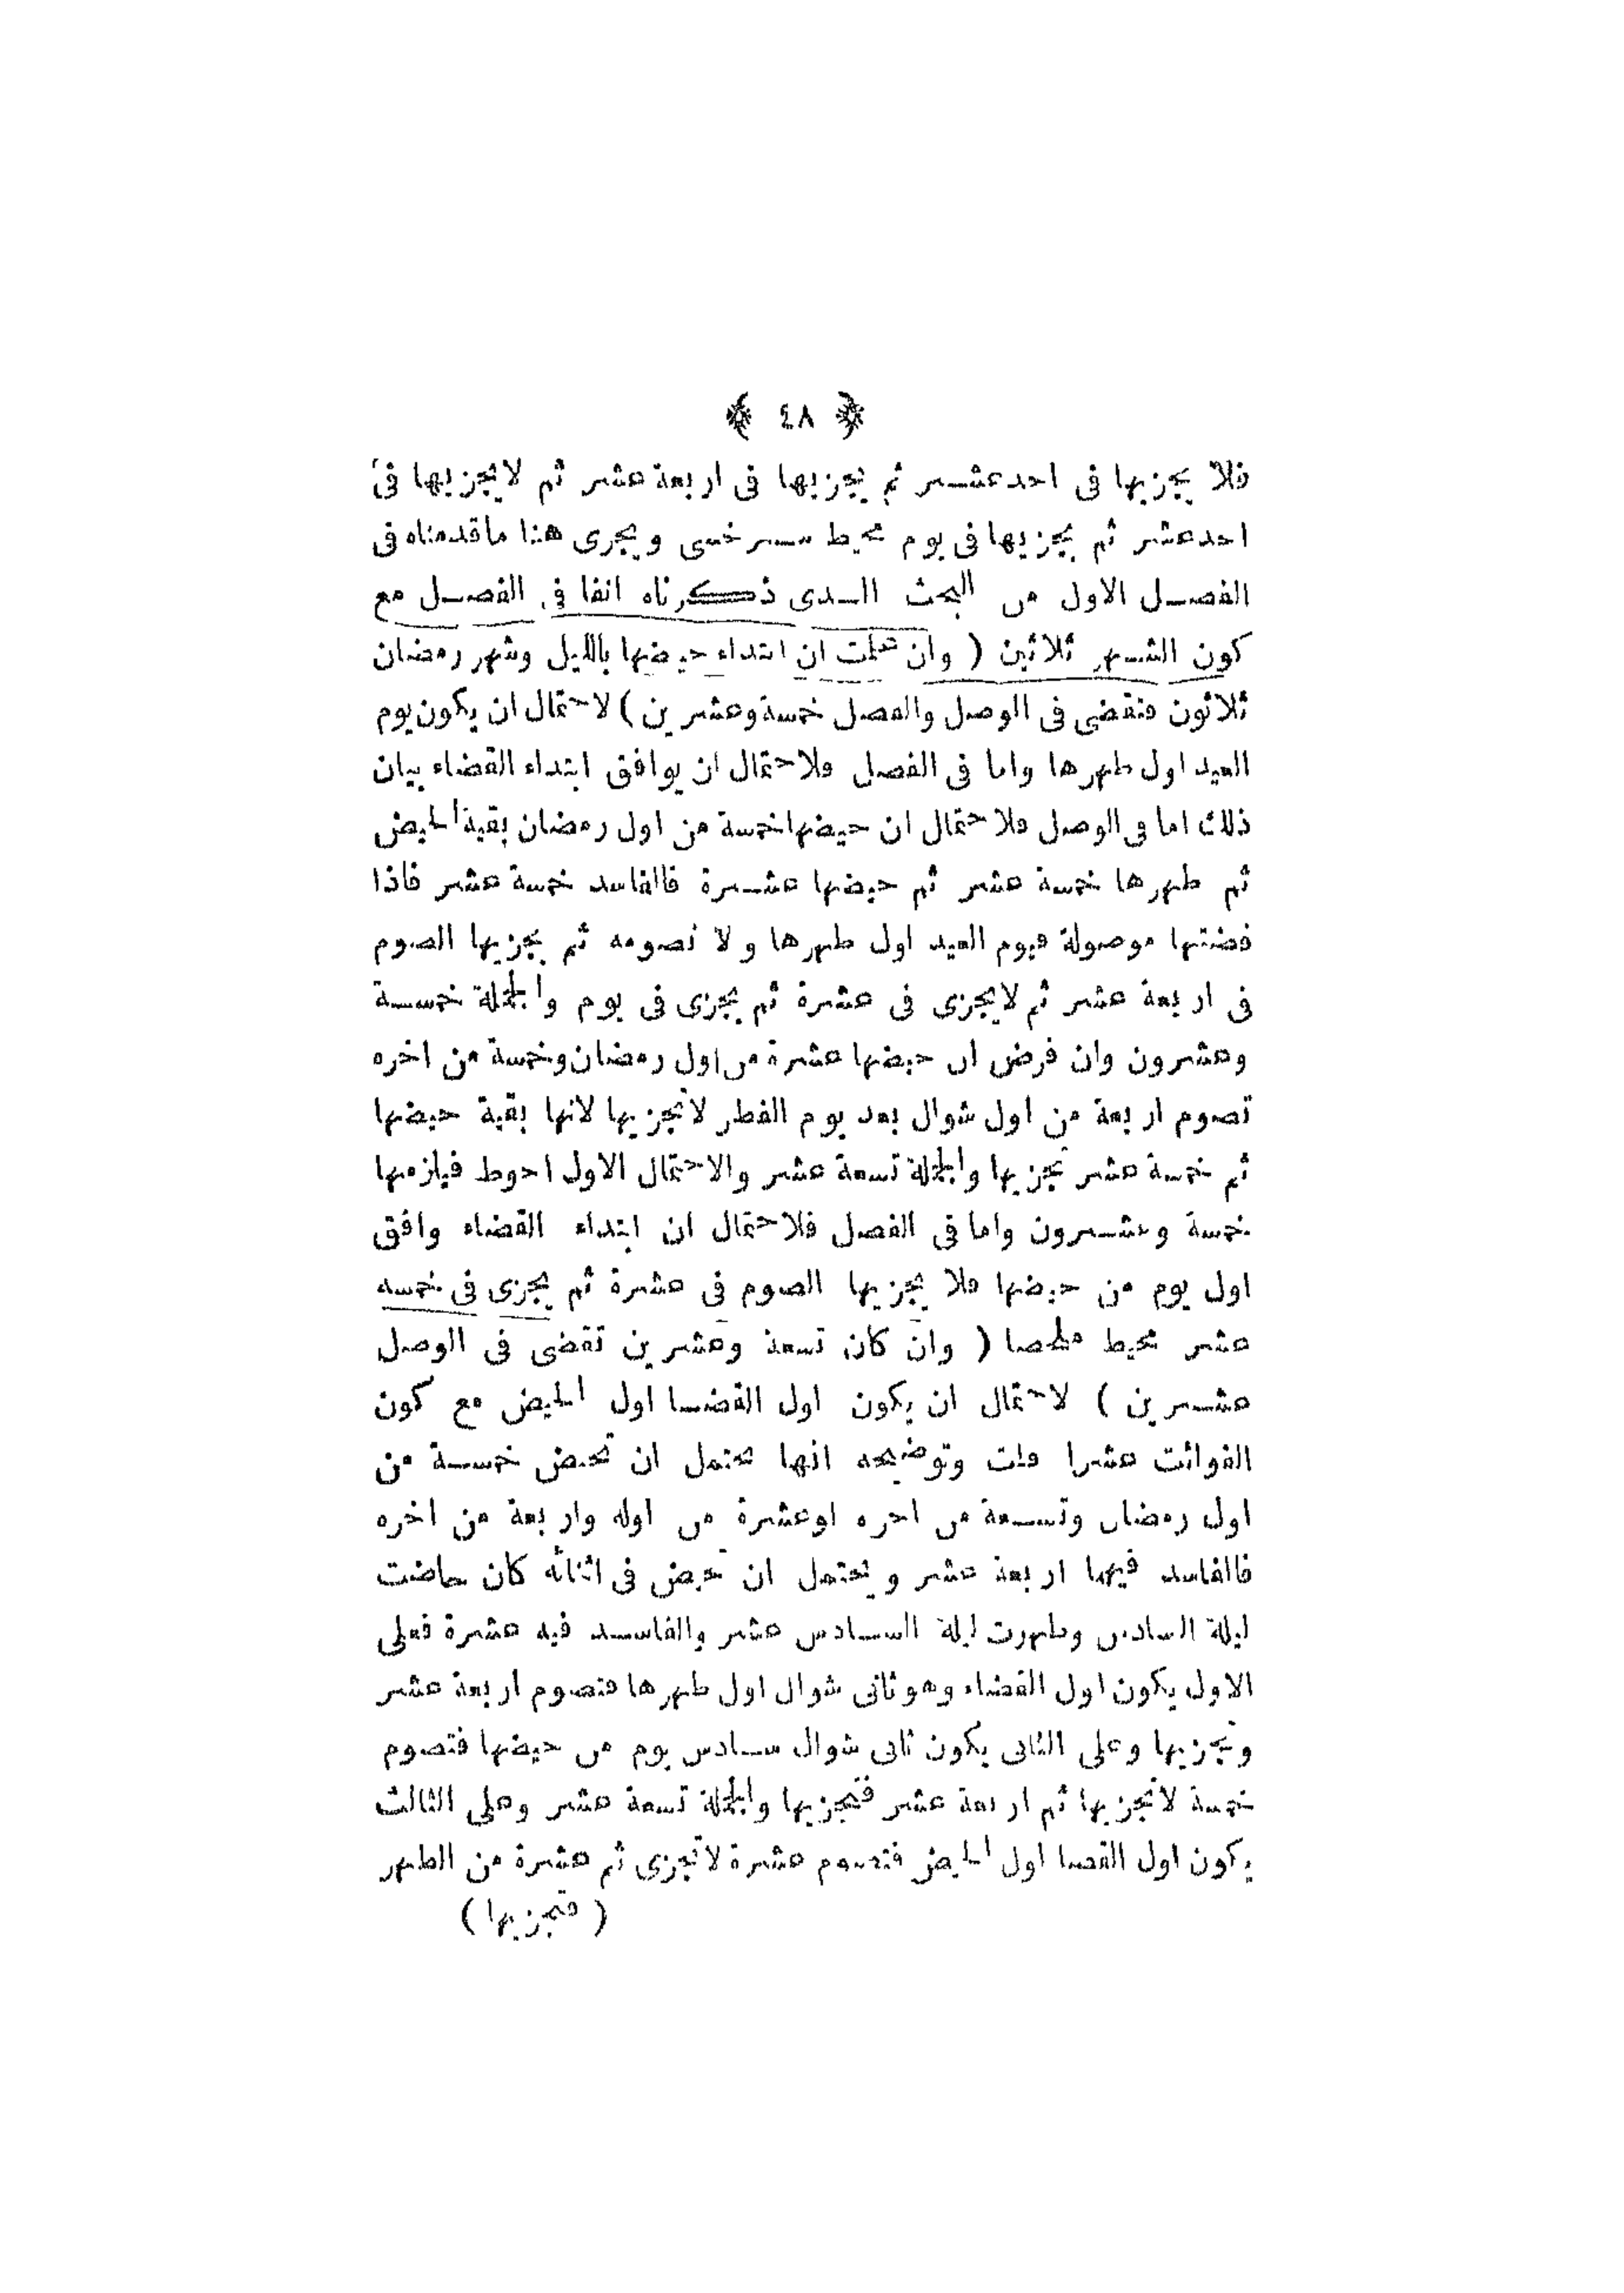 ﴿ ٤٨ ﴾
فلا يجزيها فى احدعشر ثم يجزيها فى اربعة عشر ثم لا يجزيها فى
احدعشر ثم يجزيها فى يوم محيط سرخسى ويجرى هنا ماقدمناه فى
الفصل الاول من البحث الذى ذكرناه انفا فى الفصل مع
كون الشهر ثلاثين ( وان علمت ان ابتداء حيضها بالليل وشهر رمضان
ثلاثون فتقضى فى الوصل والفصل خمسة وعشرين ) لاحتمال ان يكون يوم
العيد اول طهرها واما فى الفصل فلاحتمال ان يوافق ابتداء القضاء بيان
ذلك اما فى الوصل فلاحتمال ان حيضها خمسة من اول رمضان بقية الحيض
ثم طهرها خمسة عشر ثم حيضها عشرة فالفاسد خمسة عشر فاذا
قضتها موصولة فيوم العيد اول طهرها ولا تصومه ثم يجزيها الصوم
فى اربعة عشر ثم لا يجزى فى عشرة ثم يجزى فى يوم والجملة خمسة
وعشرون وان فرض ان حيضها عشرة من اول رمضان وخمسة من اخره
تصوم اربعة من اول شوال بعد يوم الفطر لا تجزيها لانها بقية حيضها
ثم خمسة عشر تجزيها والجملة تسعة عشر والاحتمال الاول احوط فيلزمها
خمسة وعشرون واما فى الفصل فلاحتمال ان ابتداء القضاء وافق
اول يوم من حيضها فلا يجزيها الصوم فى عشرة ثم يجزى فى خمسه
عشر محيط ملخصا ( وان كان تسعة وعشرين تقضى فى الوصل
عشرين ) لاحتمال ان يكون اول القضا اول الحيض مع كون
الفوائت عشرا قلت وتوضيحه انها يحتمل ان تحيض خمسة من
اول رمضان وتسعة من اخره اوعشرة من اوله واربعة من اخره
فالفاسد فيهما اربعة عشر ويحتمل ان تحيض فى اثنائه كان حاضت
ليلة السادس وطهرت ليلة السادس عشر والفاسد فيه عشرة فعلى
الاول يكون اول القضاء وهو ثانى شوال اول طهرها فتصوم اربعة عشر
وتجزيها وعلى الثانى يكون ثانى شوال سادس يوم من حيضها فتصوم
خمسة لا تجزيها ثم اربعة عشر فتجزيها والجملة تسعة عشر وعلى الثالث
يكون اول القضا اول الحيض فتصوم عشرة لا تجزى ثم عشرة من الطهر
( فتجزيها )